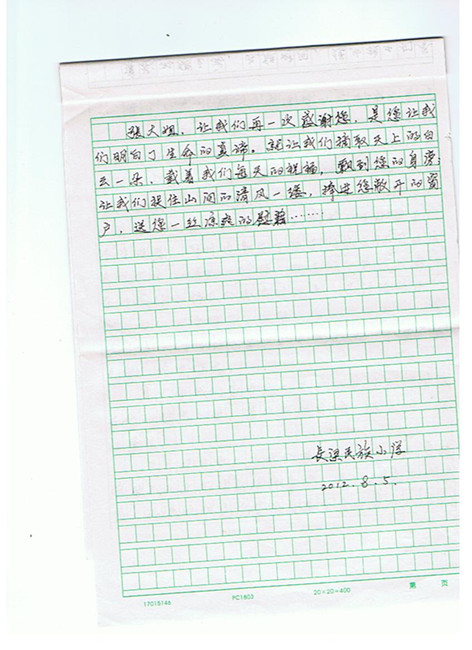 张大姐,让我们再一次感谢您,是您让我
们明白了生命的真谛。就让我们摘取天上的白
云一朵,载着我们每天的祝福,飘到您的身旁;
让我们捉住山间的清风一缕,捧进您敞开的窗
户,送您一丝凉爽的慰藉……
长梁民族小学
2012.8.5.
17015146
PC1803
20×20=400
第 页